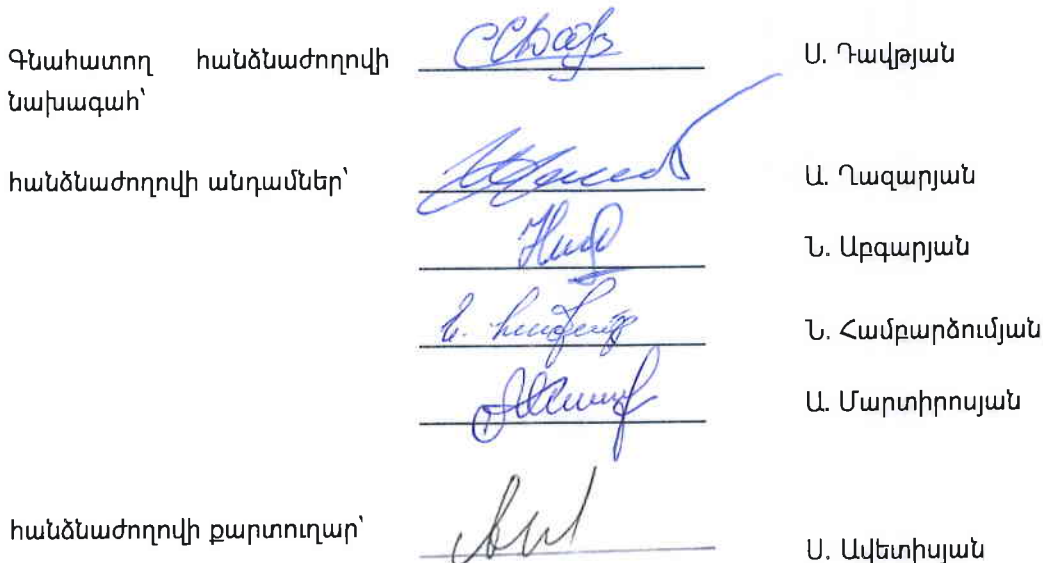 Գնահատող հանձնաժողովի Ս. Դավթյան
նախագահ՝
հանձնաժողովի անդամներ՝ Ա. Ղազարյան
Ն. Աբգարյան
Ն. Համբարձումյան
Ա. Մարտիրոսյան
հանձնաժողովի քարտուղար՝
Ս. Ավետիսյան